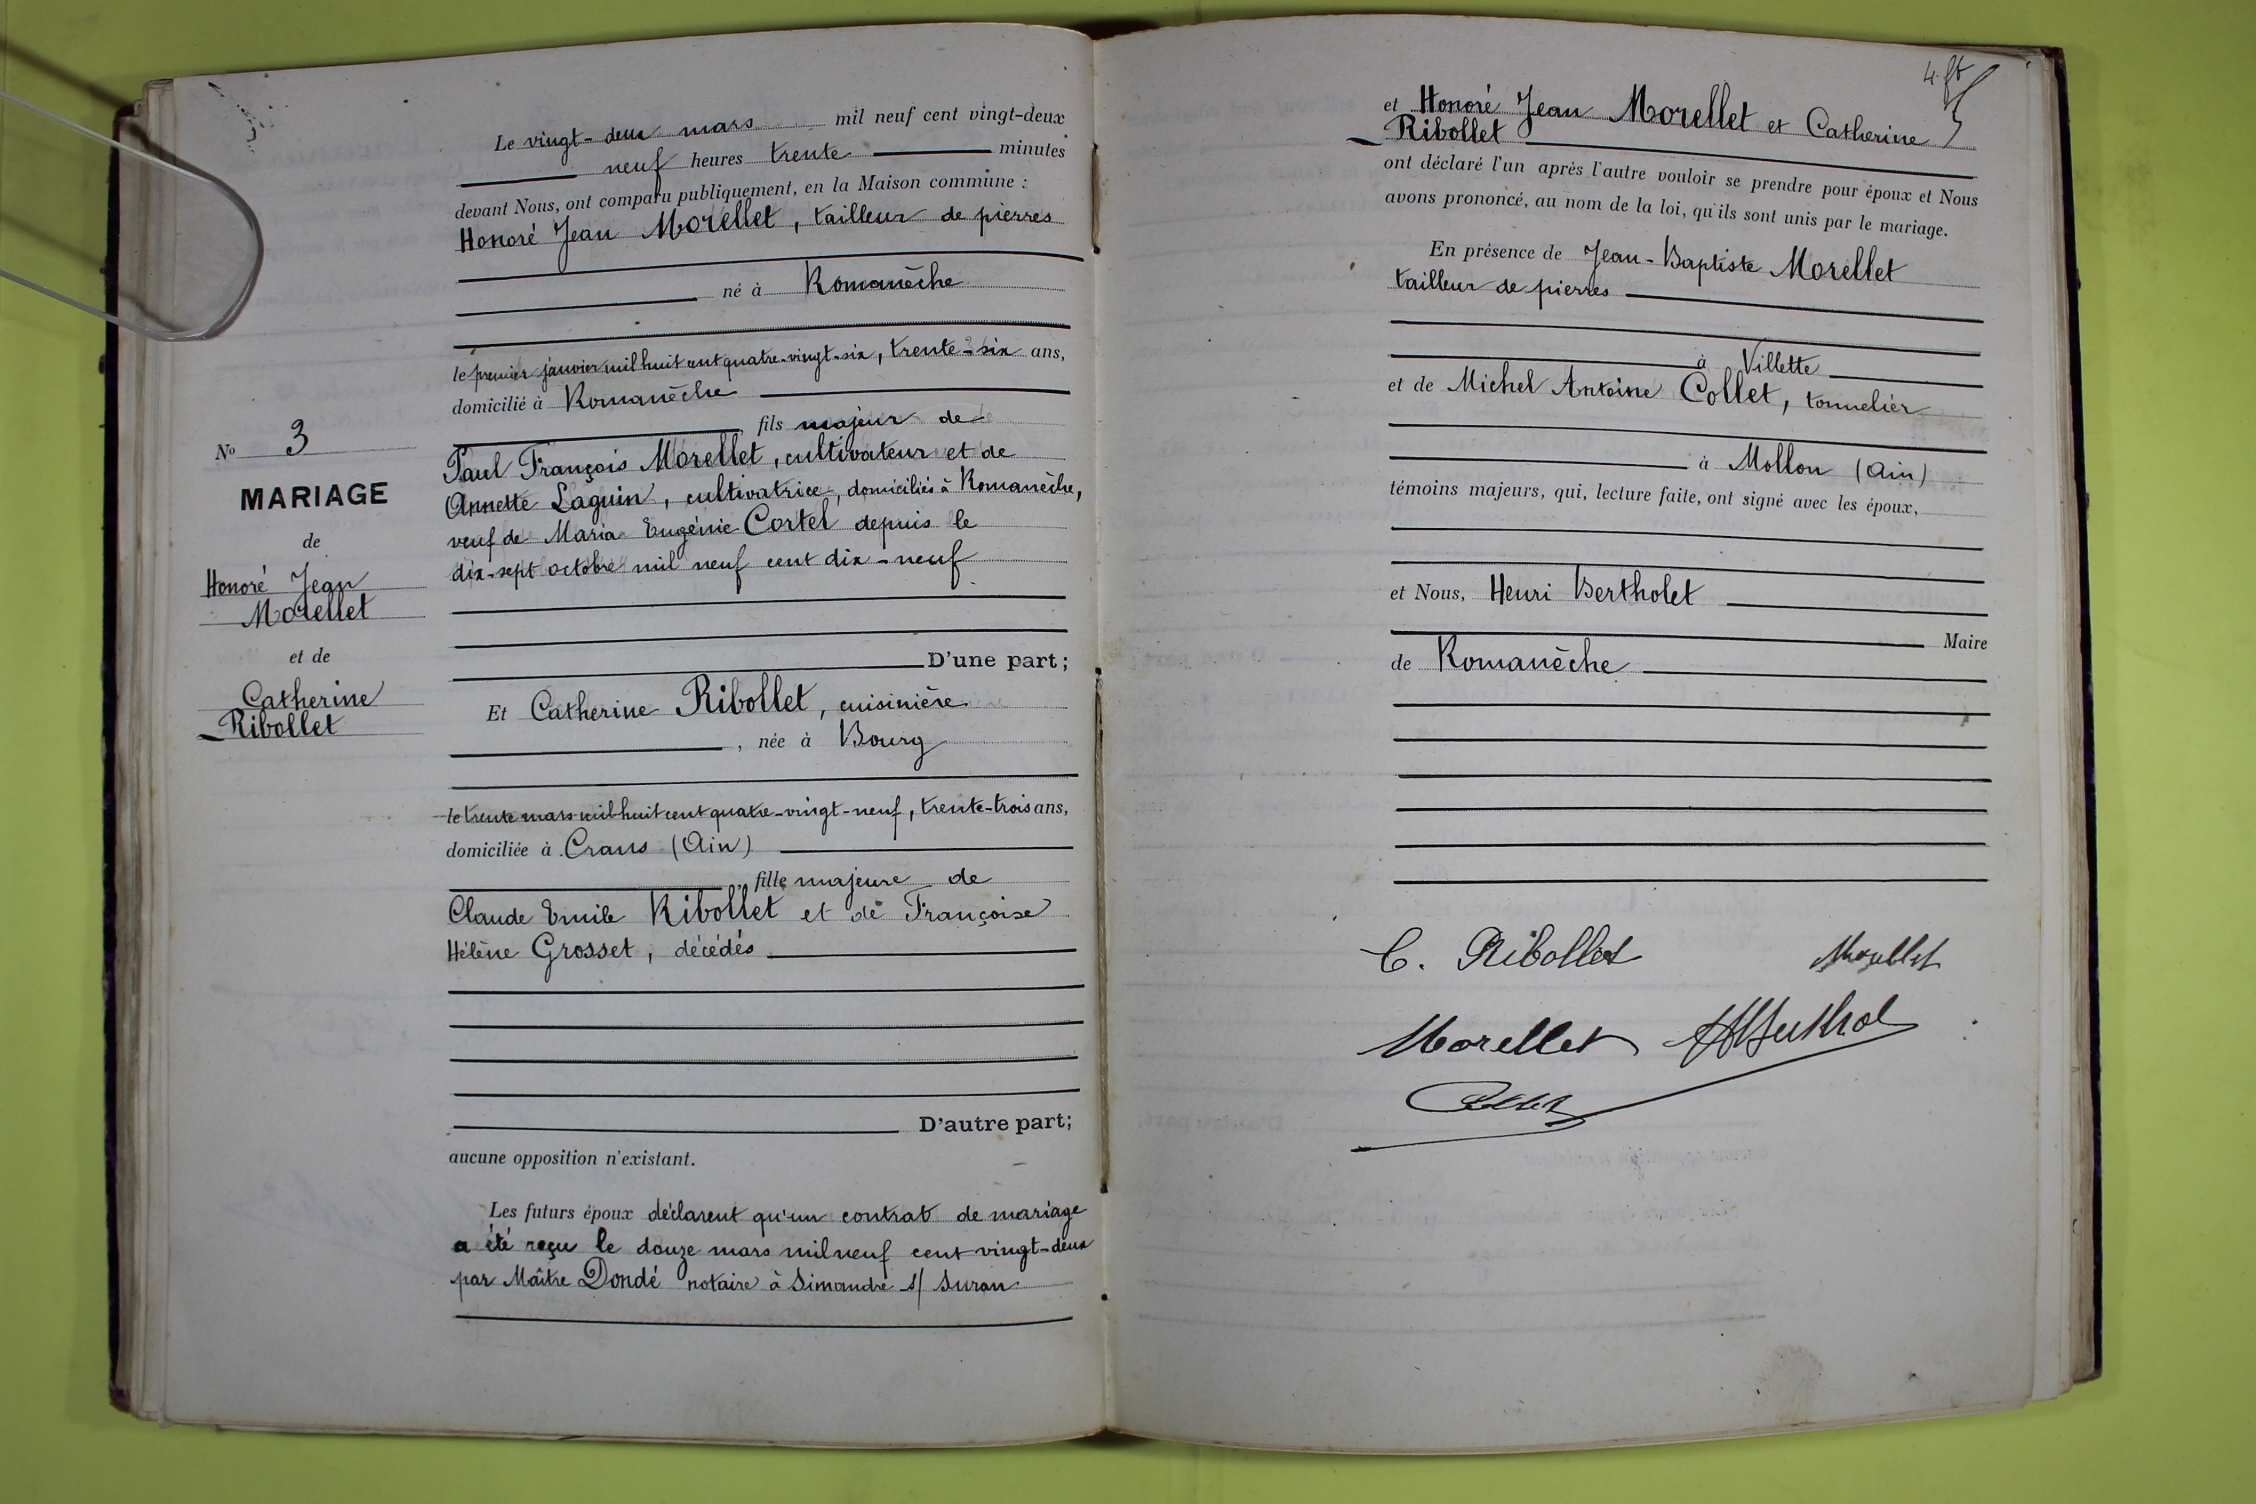 Le vingt-deux mars mil neuf cent vingt-deux
neuf heures trente minutes
devant Nous, ont comparu publiquement, en la Maison commune :
Honoré Jean Morellet, tailleur de pierres
né à Romanèche
le premier janvier mil huit cent quatre-vingt-six, trente-six ans,
domicilié à Romanèche
fils majeur de
Paul François Morellet, cultivateur et de
Annette Laguin, cultivatrice, domiciliés à Romanèche,
veuf de Maria Eugénie Cortel depuis le
dix-sept octobre mil neuf cent dix-neuf
D'une part;
Et Catherine Ribollet, cuisinière
, née à Bourg
le trente mars mil huit cent quatre-vingt-neuf, trente-trois ans,
domiciliée à Crans (Ain)
fille majeure de
Claude Emile Ribollet et de Françoise
Hélène Grosset, décédés
D'autre part;
aucune opposition n'existant.
Les futurs époux déclarent qu'un contrat de mariage
a été reçu le douze mars mil neuf cent vingt-deux
par Maître Dondé notaire à Simandre s/ Suran
No 3
MARIAGE
de
Honoré Jean
Morellet
et de
Catherine
Ribollet
et Honoré Jean Morellet et Catherine
Ribollet
ont déclaré l'un après l'autre vouloir se prendre pour époux et Nous
avons prononcé, au nom de la loi, qu'ils sont unis par le mariage.
En présence de Jean-Baptiste Morellet
tailleur de pierres
à Villette
et de Michel Antoine Collet, tonnelier
à Mollon (Ain)
témoins majeurs, qui, lecture faite, ont signé avec les époux,
et Nous, Henri Bertholet
Maire
de Romanèche
C. Ribollet Morellet
Morellet
Collet